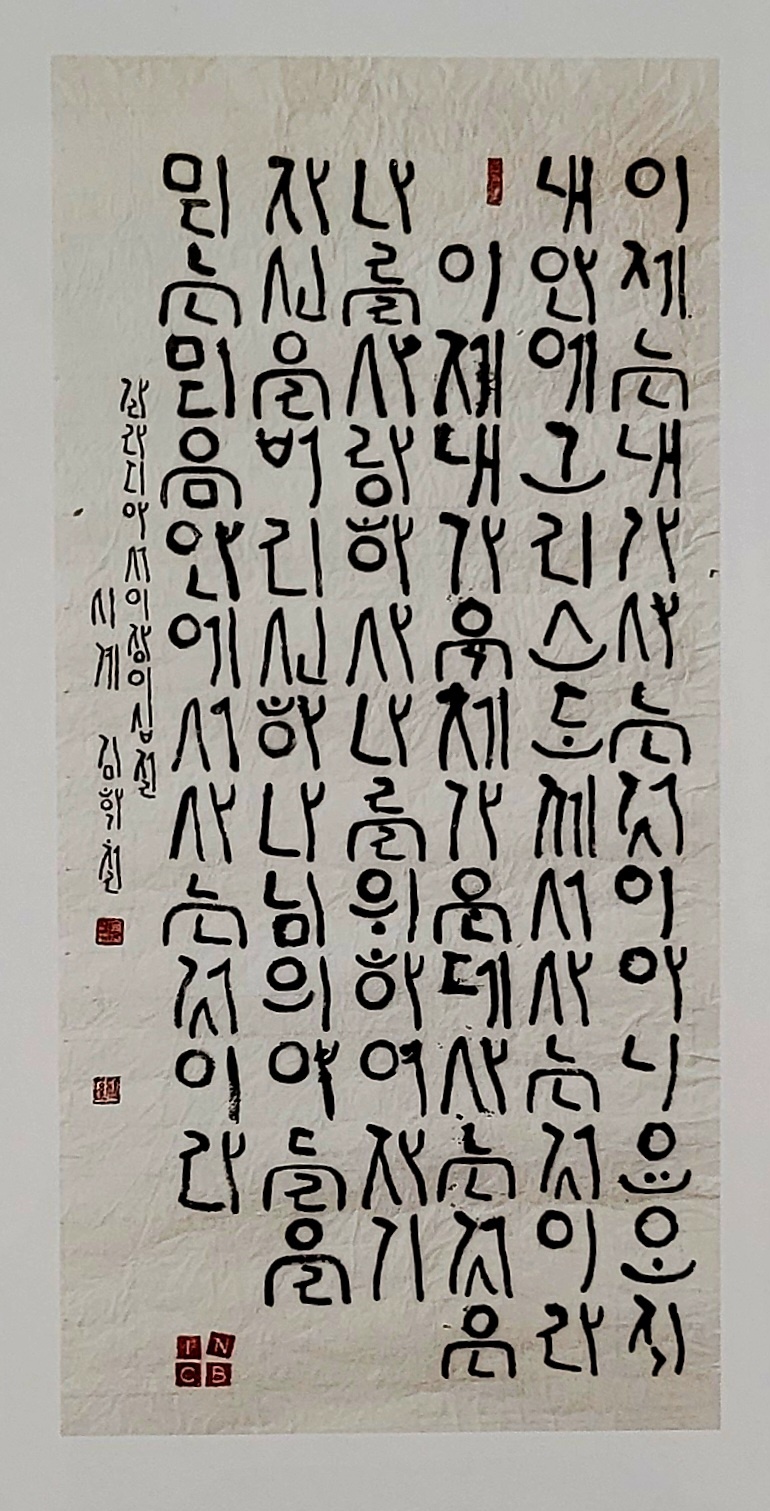 이제는내가사는것이아니요오직
내안에그리스도께서사는것이라
이제내가육체가운데사는것은
나를사랑하사나를위하여자기
자신을버리신하나님의아들을
믿는믿음안에서사는것이라
갈라디아서이장이십절
시계 김학철
IN
CB